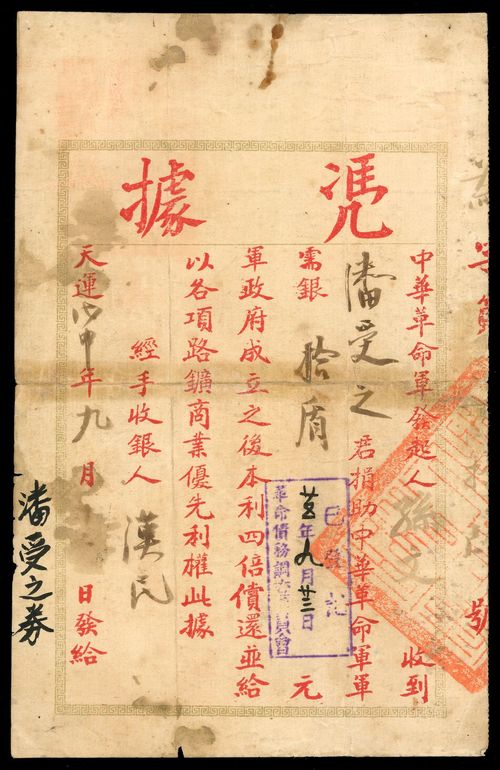 凴據
字第 號
中華革命軍發起人孫文收到
潘受之君捐助中華革命軍軍
需銀拾盾元
軍政府成立之後本利四倍償還並給
以各項路鑛商業優先利權此據
經手收銀人漢民
天運戊申年九月日發給
潘受之券
已登記
廿五年九月廿三日
革命債務調查委員會